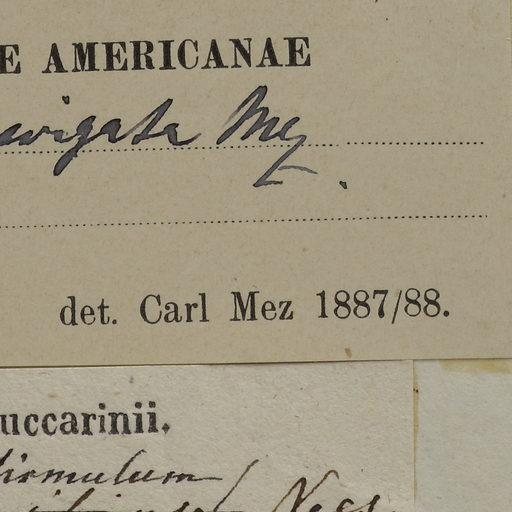 E AMERICANAE
evigata Mez.
det. Carl Mez 1887/88.
uccarinii.
Nees